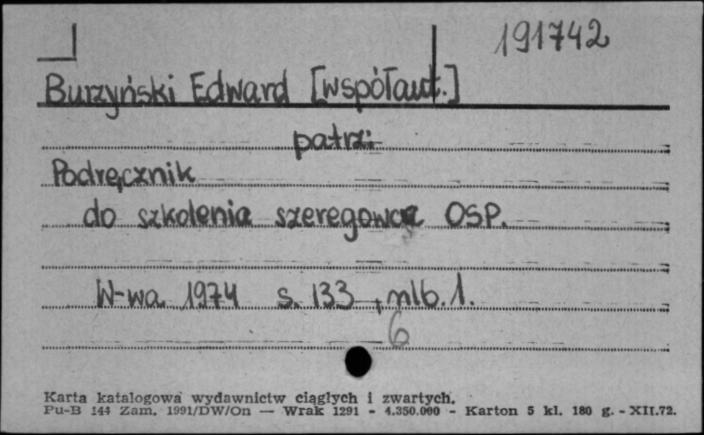 191742
Burzyński Edward [współaut.]
patrz:
Podręcznik
do szkolenia szeregowca OSP.
W-wa 1974 s. 133, nlb. 1.
6
Karta katalogowa wydawnictw ciągłych i zwartych.
Pu-B 144 Zam. 1991/DW/On — Wrak 1291 - 4.350.000 - Karton 5 kl. 180 g. - XII.72.